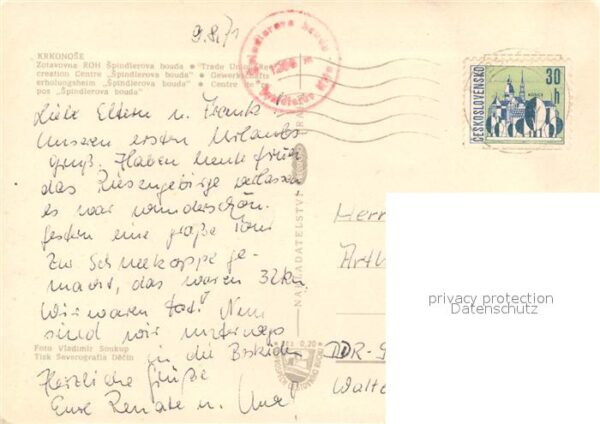 9.8.71
KRKONOŠE
Zotavovna ROH Špindlerova bouda • Trade Union Re-
creation Centre „Špindlerova bouda" • Gewerkschafts-
erholungsheim „Špindlerova bouda" • Centre de re-
pos „Špindlerova bouda"
Špindlerova bouda
1208 m
ČESKOSLOVENSKO
30 h
Liebe Eltern u. Frank!
Unseren ersten Urlaubs
gruß. Haben heute früh
das Riesengebirge verlassen
es war wunderschön.
Gestern eine große Tour
zur Schneekoppe ge-
macht, das waren 32 km.
Wir waren tot! Nun
sind wir unterwegs
in die Beskiden
Herzliche Grüße
Eure Renate u.
NAKLADATELSTVÍ
Foto Vladimír Soukup
Tisk Severografia Děčín
Kčs 0,20
Herr
Arth
DDR-9
Walte
privacy protection
Datenschutz